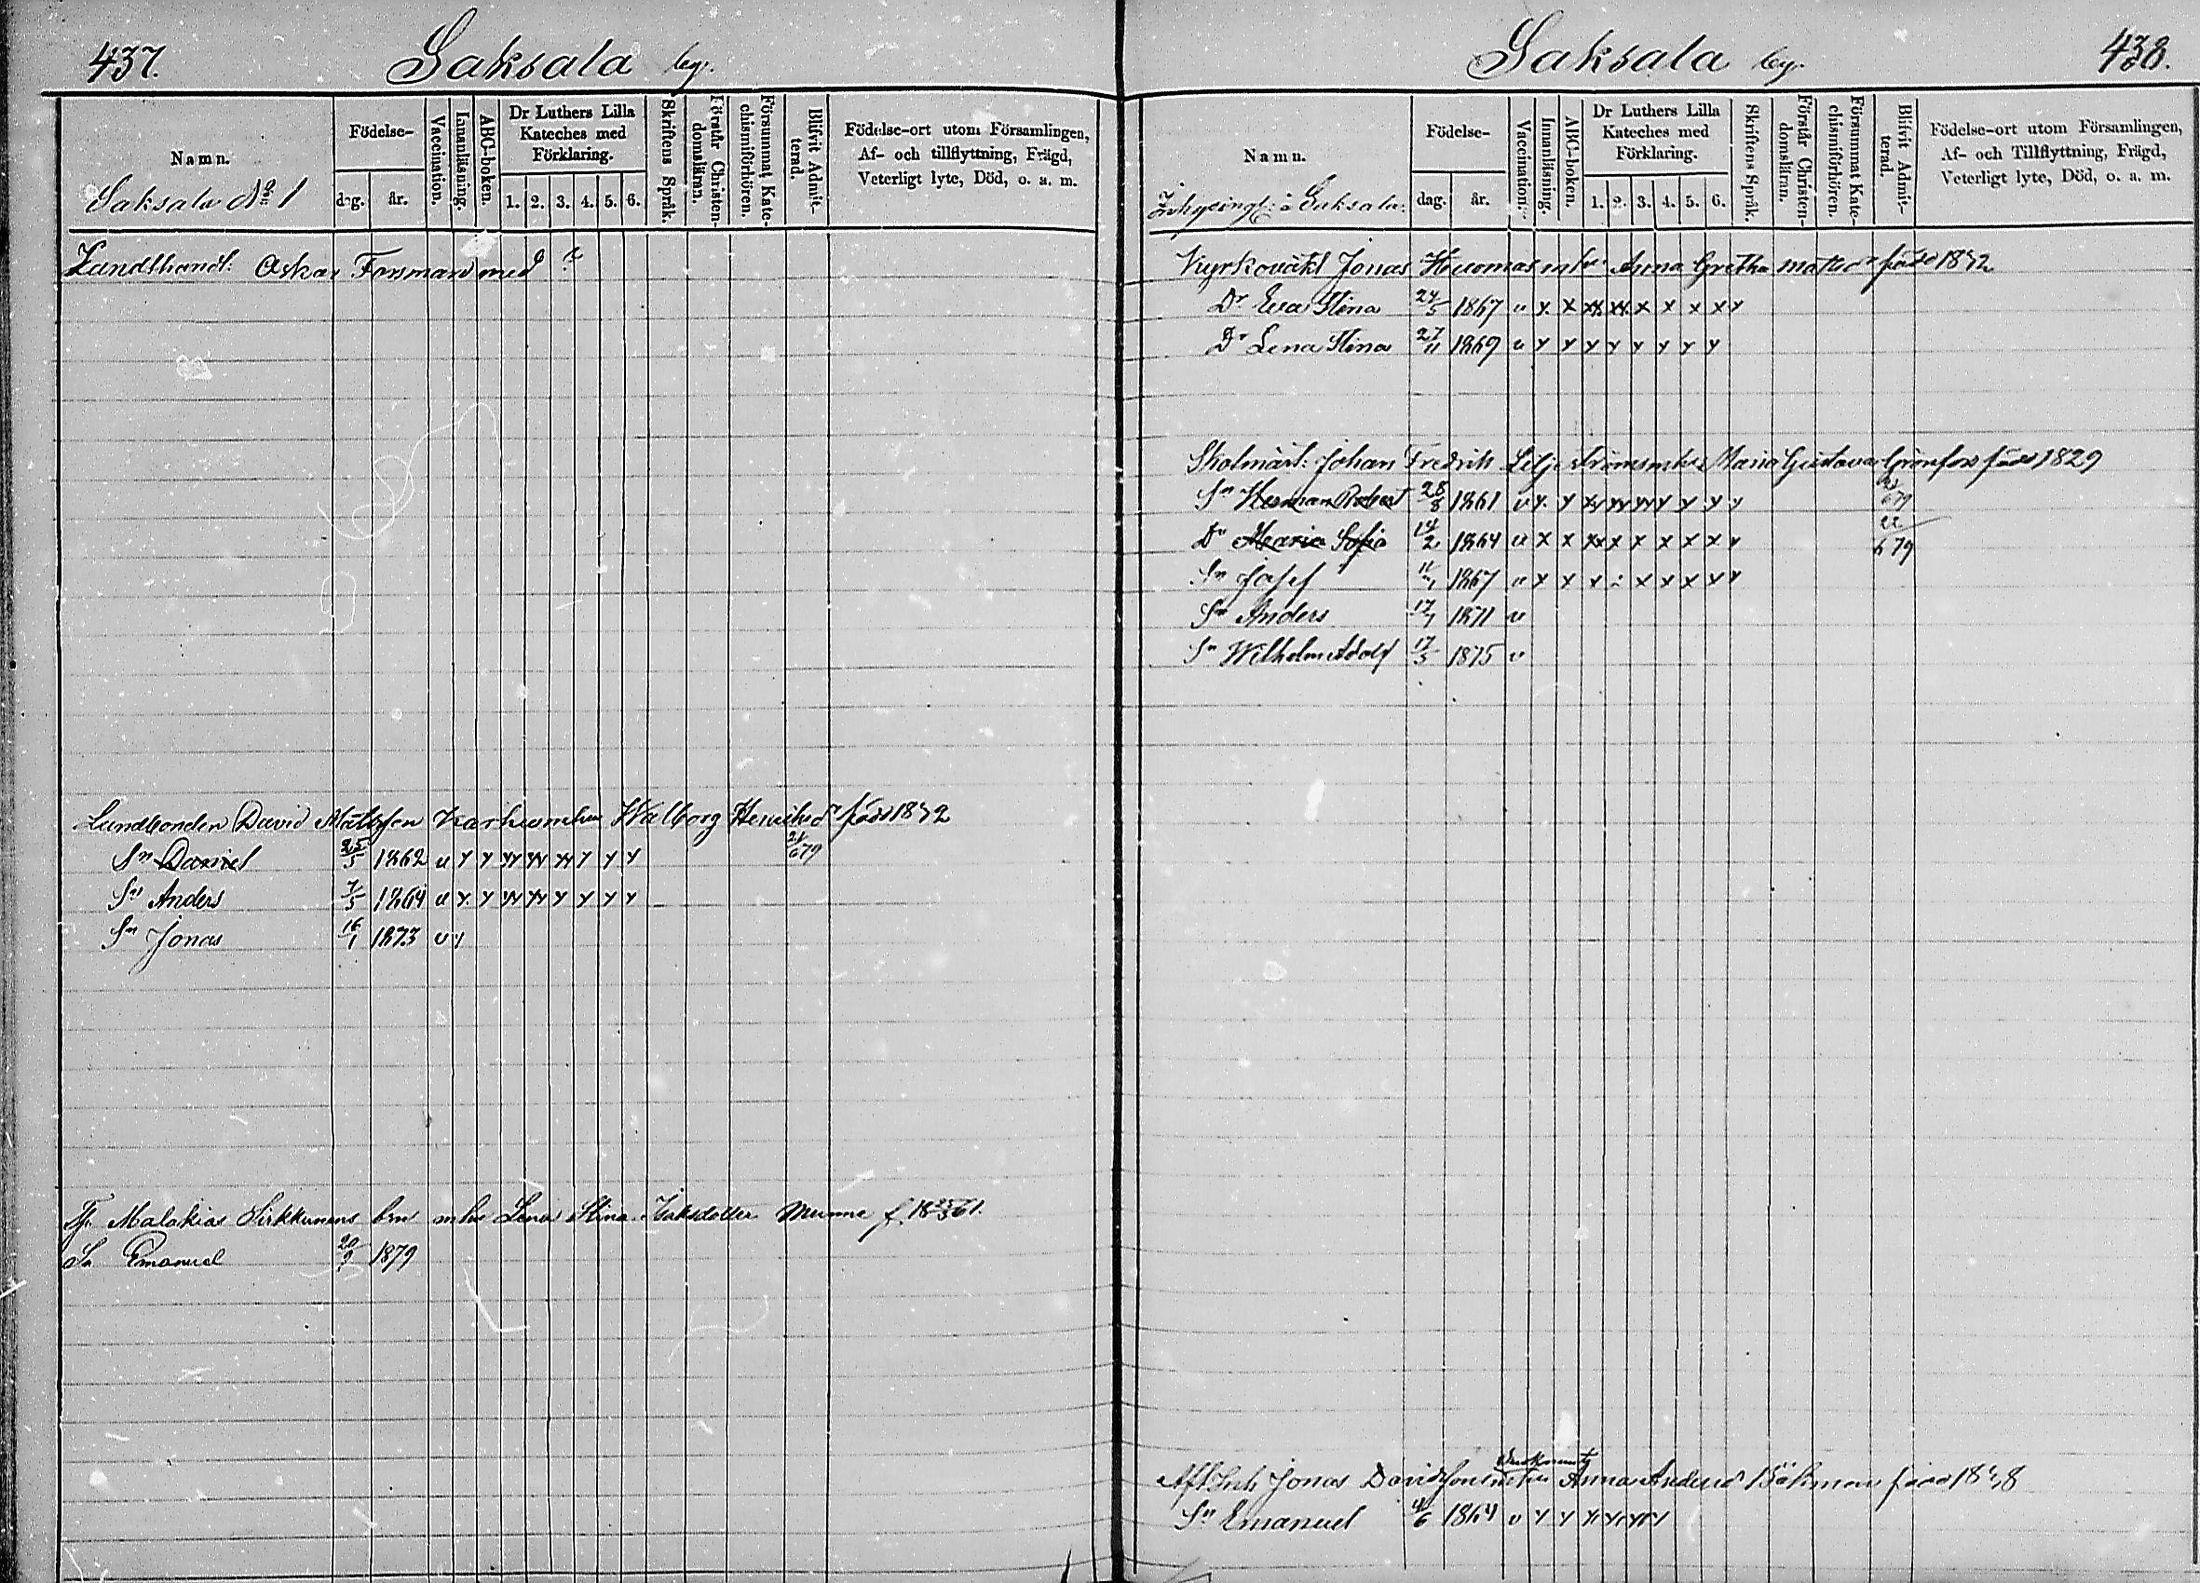 437. Saksala by.
Namn.
Saksala No 1
Födelse-
dag. år.
Vaccination.
Innanläsning.
ABC-boken.
Dr Luthers Lilla Kateches med Förklaring.
1. 2. 3. 4. 5. 6.
Skriftens Språk.
Förstår Christendomsläran.
Försummat Katechismiförhören.
Blifvit Admitterad.
Födelse-ort utom Församlingen, Af- och tillflyttning, Frägd, Veterligt lyte, Död, o. a. m.
Landthandl: Oskar Forsman med
Landbonden David Mattsson Walborg född 1832
Sn Daniel 25/5 1862 v 21/6 79
Sn Anders 7/5 1864 v
Sn Jonas 16/1 1873 v
Malakias Sirkkunens Lena Stina Munne f. 18
Sn Emanuel 20/9 1879
Saksala by. 438.
Namn.
Inhysingl: å Saksala.
Födelse-
dag. år.
Vaccination.
Innanläsning.
ABC-boken.
Dr Luthers Lilla Kateches med Förklaring.
1. 2. 3. 4. 5. 6.
Skriftens Språk.
Förstår Christendomsläran.
Försummat Katechismiförhören.
Blifvit Admitterad.
Födelse-ort utom Församlingen, Af- och Tillflyttning, Frägd, Veterligt lyte, Död, o. a. m.
Kyrkovakt Jonas Huomas Anna Gretha född 1832
Dr Eva Stina 24/5 1867 v x x xx xx x x x x x
Dr Lena Stina 27/11 1869 v
Skolmäst: Johan Fredrik Liljeström Maria Gustava Grönfors född 1829
Sn Herman Robert 28/8 1861 v 21/6 79
Dr Maria Sofia 14/2 1864 v 22/6 79
Sn Josef 11/1 1867 v
Sn Anders 17/1 1871 v
Sn Wilhelm Adolf 17/3 1875 v
Jonas Davidsson Anna född 18
Sn Emanuel 1864 v